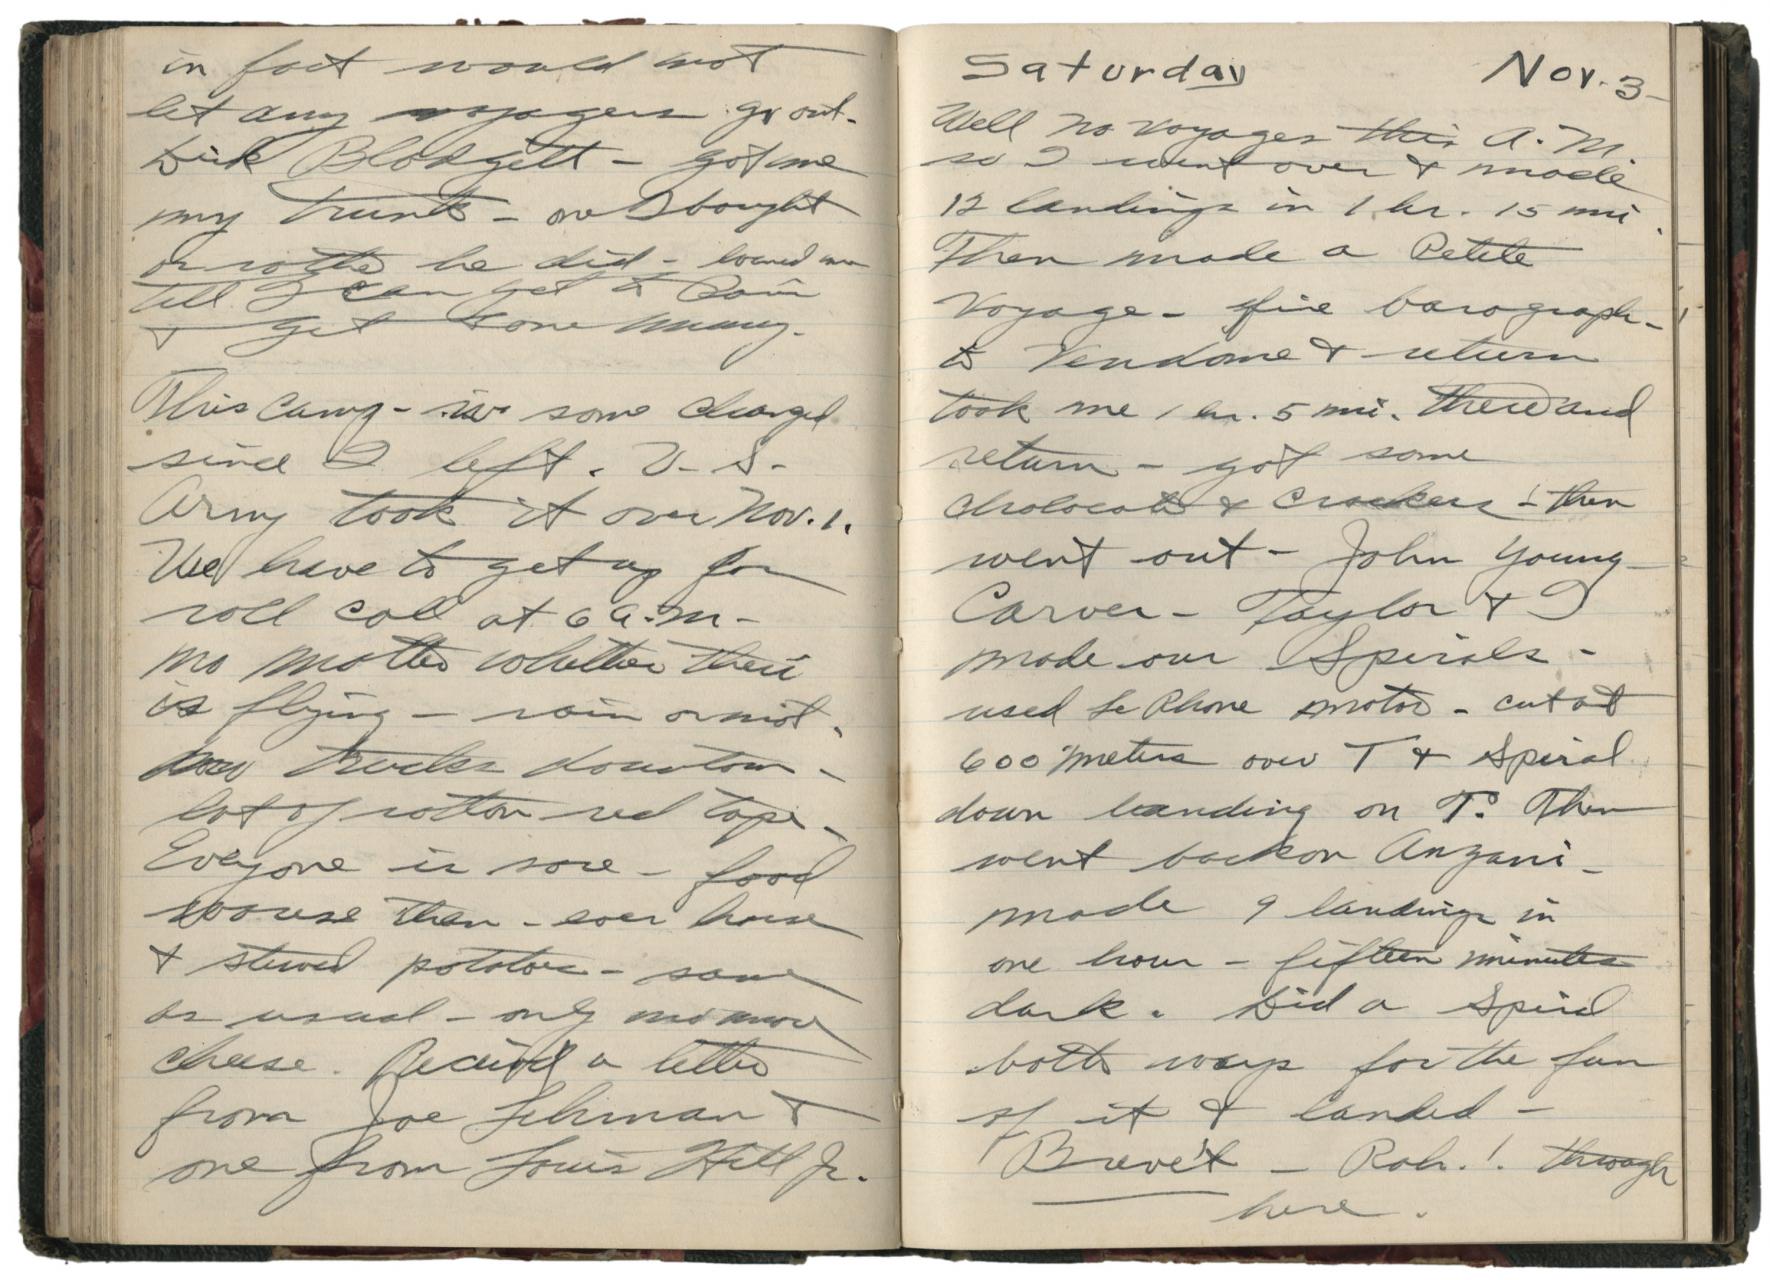 in fact would not
let any voyagers go out.
Dick Blodgett - got me
my trunk - one I bought
or rather he did - loaned me
till I can get to Paris
& get some money.
This camp - is some changed
since I left. U. S.
Army took it over Nov. 1.
We have to get up for
roll call at 6 a.m. -
no matter whether there
is flying - rain or not.
trucks downtown -
lot of rotten red tape -
Everyone is sore - food
worse then ever horse
& stewed potatoes - same
as usual - only no more
cheese. Received a letter
from Joe Lehman &
one from Louis Hill Jr.
Saturday Nov. 3 -
Well no voyages this A. M.
so I went over & made
12 landings in 1 hr. 15 mi.
Then made a Petite
Voyage - fixe barograph -
to Vendome & return
took me 1 hr. 5 mi. there and
return - got some
cholocate & crackers - then
went out - John Young -
Carver - Taylor & I
made our Spirals -
used Le Rhone motor - cut at
600 meters over T & Spiral
down landing on T. Then
went back on Anzani -
made 9 landings in
one hour - fifteen minutes
dark. Did a Spiral
both ways for the fun
of it & landed -
Breve't - Rah.! through
here.